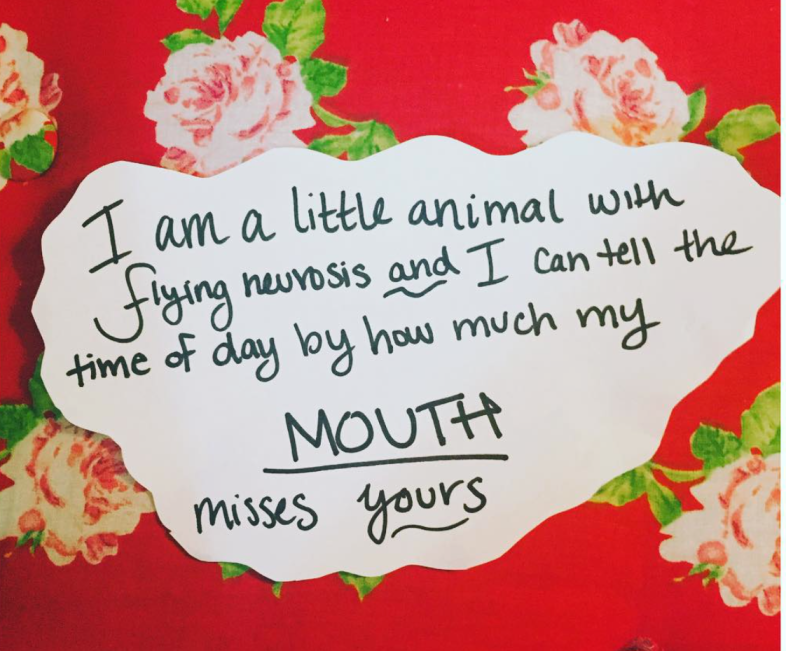 I am a little animal with
flying neurosis and I can tell the
time of day by how much my
MOUTH
misses yours